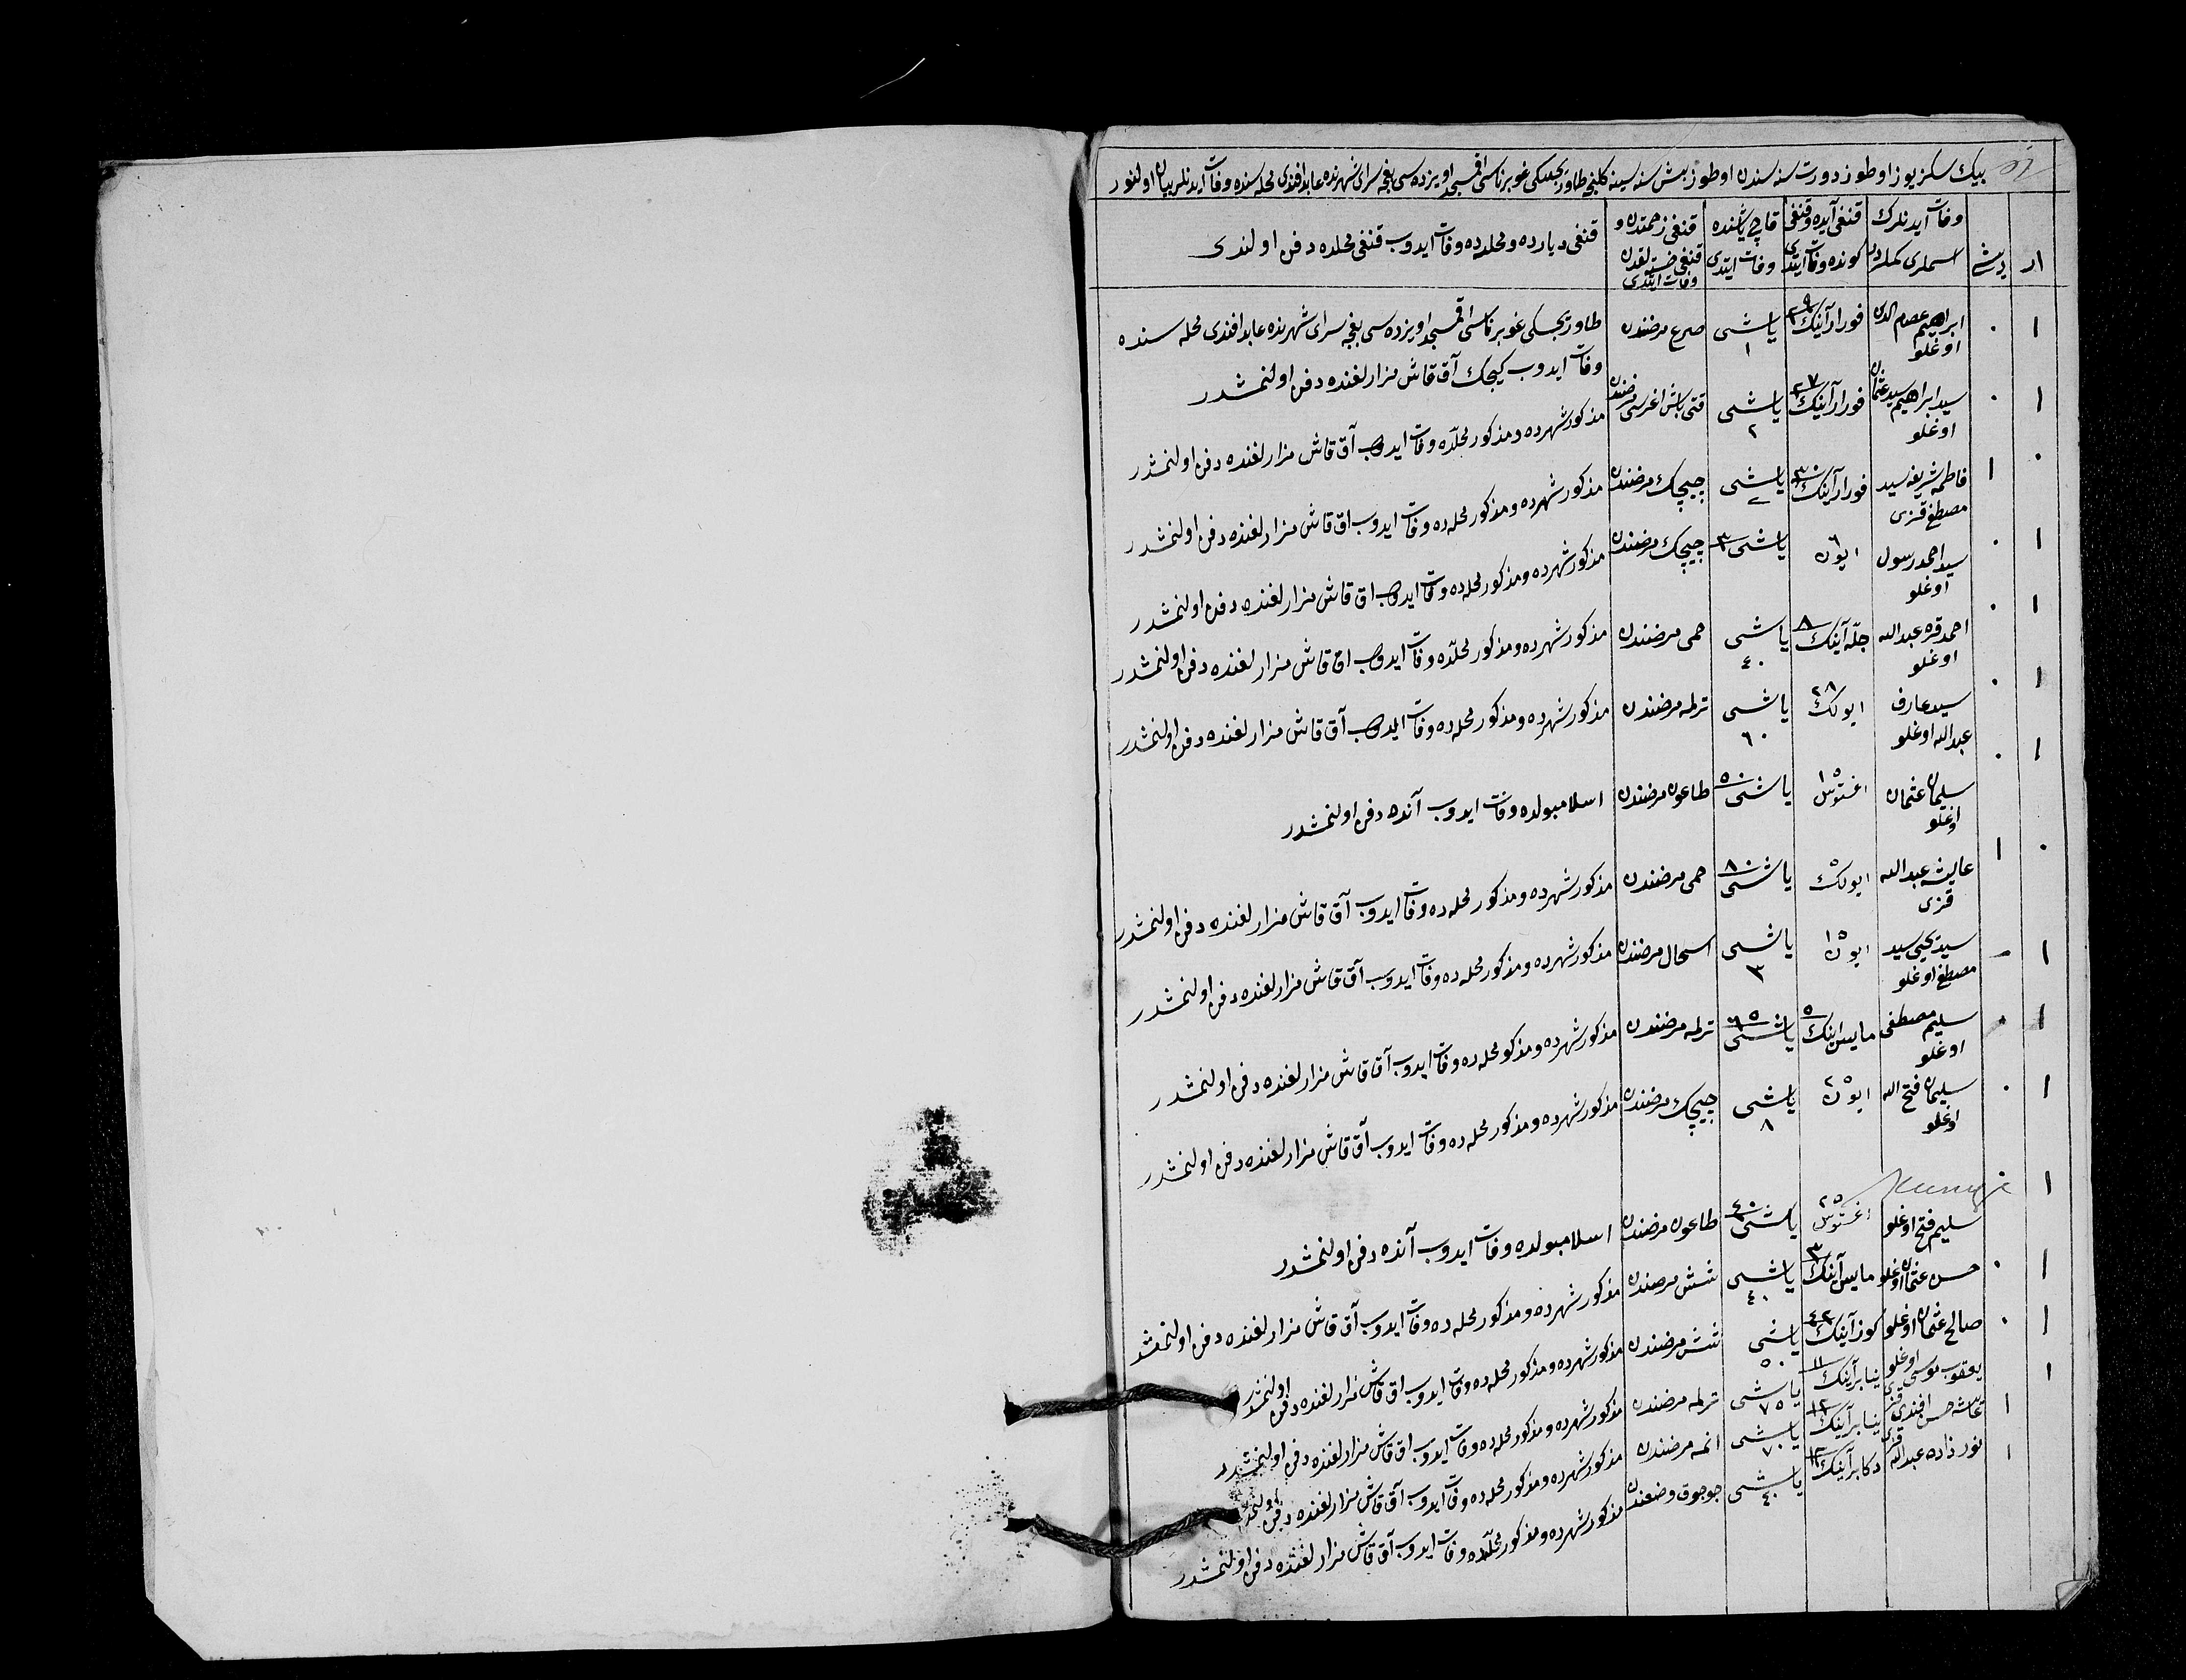 بیك سكز یوز اوطوز دورت سنه سندن اوطوز بش سنه سینه كلنجه طاوریچسكی غوبرناسی اقمسجد اویزده سی بغچه سرای شهرنده عابد افندی محله سنده وفات ایدنلر بیان اولنور
ار
دیشی
وفات ایدنلرك اسملری كملردر
قنغی آیده و قنغی كونده وفات ایتدی
قاچ یاشنده وفات ایتدی
قنغی زحمتدن و قنغی خسته لقدن وفات ایتدی
قنغی دیارده و محلده وفات ایدوب قنغی محلده دفن اولندی
١ ٠ ابراهیم عصام الدین اوغلو فورار آینك ٢٩ یاشی ١ صرع مرضندن طاوریچسكی غوبرناسی اقمسجد اویزده سی بغچه سرای شهرنده عابد افندی محله سنده
وفات ایدوب كیچك آق قاش مزارلغنده دفن اولنمشدر
١ ٠ سید ابراهیم سید عثمان اوغلو فورار آینك ٢٧ یاشی ٢ قتی باش اغرسی مرضندن مذكور شهرده و مذكور محلده وفات ایدوب آق قاش مزارلغنده دفن اولنمشدر
٠ ١ فاطمه شریفه سید مصطفی قزی فورار آینك ٣٠ یاشی ٢ چیچك مرضندن مذكور شهرده و مذكور محله ده وفات ایدوب اق قاش مزارلغنده دفن اولنمشدر
١ ٠ سید احمد رسول اوغلو ایون ٦ یاشی ٣ چیچك مرضندن مذكور شهرده و مذكور محله ده وفات ایدوب اق قاش مزارلغنده دفن اولنمشدر
١ ٠ احمد قره عبدالله اوغلو جله آینك ٨ یاشی ٤٠ حمی مرضندن مذكور شهرده و مذكور محلده وفات ایدوب اق قاش مزارلغنده دفن اولنمشدر
١ ٠ سید عارف عبدالله اوغلو ایولك ٢٨ یاشی ٦٠ ترلمه مرضندن مذكور شهرده و مذكور محله ده وفات ایدوب آق قاش مزارلغنده دفن اولنمشدر
١ ٠ سلیمان عثمان اوغلو اغستوس ١٥ یاشی ٥٠ طاعون مرضندن اسلامبولده وفات ایدوب آنده دفن اولنمشدر
٠ ١ عایشه عبدالله قزی ایولك ٥ یاشی ٨٠ حمی مرضندن مذكور شهرده و مذكور محله ده وفات ایدوب آق قاش مزارلغنده دفن اولنمشدر
١ ٠ سید یحیی سید مصطفی اوغلو ایون ١٥ یاشی ٣ اسحال مرضندن مذكور شهرده و مذكور محله ده وفات ایدوب آق قاش مزارلغنده دفن اولنمشدر
١ ٠ سلیم مصطفی اوغلو مایس اینك ٥ یاشی ٦٥ ترلمه مرضندن مذكور شهرده و مذكو محله ده وفات ایدوب آق قاش مزارلغنده دفن اولنمشدر
١ ٠ سلیمان فتح الله اوغلو ایون ٢٥ یاشی ٨ چیچك مرضندن مذكور شهرده و مذكور محله ده وفات ایدوب آق قاش مزارلغنده دفن اولنمشدر
١ سلیم فتح اوغلو اغستوس ٢٥ یاشی ٤٠ طاعون مرضندن اسلامبولده وفات ایدوب آنده دفن اولنمشدر
١ ٠ حسن عثمان اوغلو مایس آینك ٣ یاشی ٤٠ شش مرضندن مذكور شهرده و مذكور محله ده وفات ایدوب آق قاش مزارلغنده دفن اولنمشدر
١ ٠ صالح عثمان اوغلو كوز آینك یاشی ٥٠ شش مرضندن مذكور شهرده و مذكور محله ده وفات ایدوب اق قاش مزارلغنده دفن اولنمشدر
١ یعقوب موسی اوغلو ینابر آینك ١١ یاشی ٧٥ ترلمه مرضندن مذكور شهرده و مذكور محله ده وفات ایدوب اق قاش مزارلغنده دفن اولنمشدر
١ حسن افندی قزی ینابر آینك ١٢ یاشی ٧٠ مرضندن مذكور شهرده و مذكور محله ده وفات ایدوب آق قاش مزارلغنده دفن اولنمشدر
١ نور زاده عبدالله قزی دكابر آینك یاشی ٤٠ جوجوق وضعندن مذكور شهرده و مذكور محلده وفات ایدوب آق قاش مزارلغنده دفن اولنمشدر